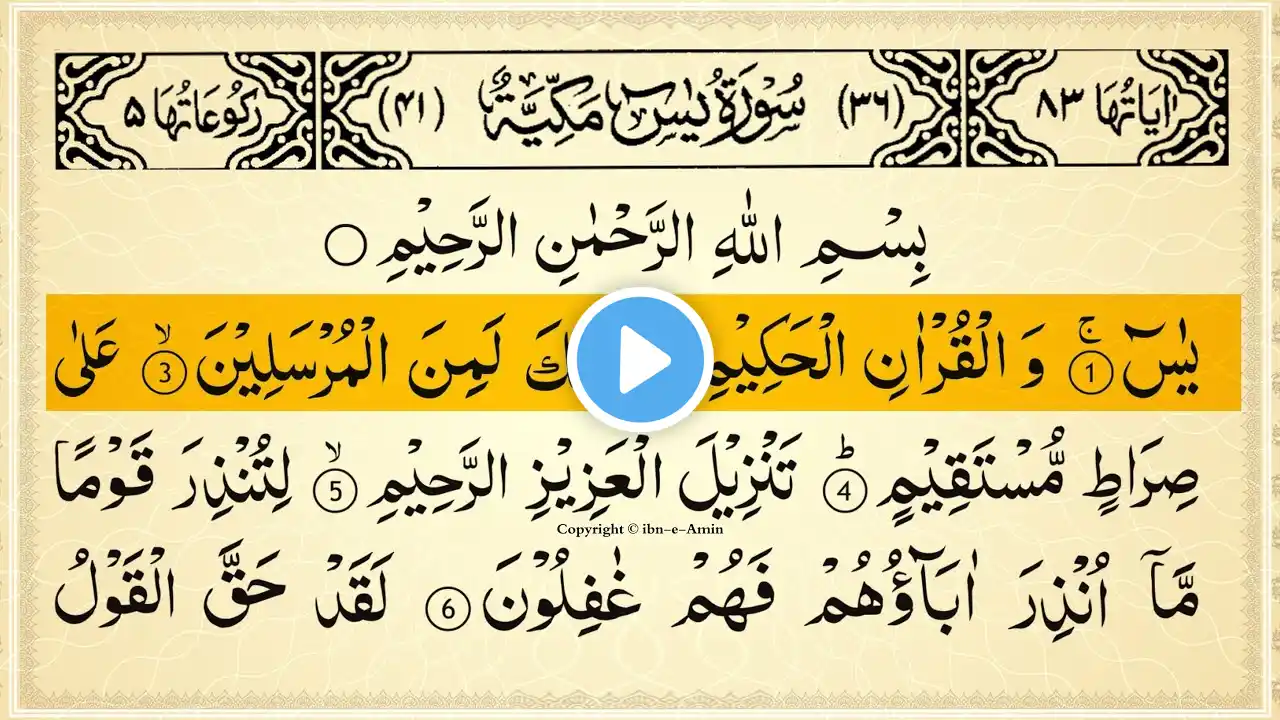 اٰيَاتُهَا ٨٣ (٣٦) سُوْرَةُ يٰسٓ مَكِّيَّةٌ (٤١) رَكُوْعَاتُهَا ٥
بِسْمِ اللّٰهِ الرَّحْمٰنِ الرَّحِيْمِ ○
يٰسٓ ۚ ① وَ الْقُرْاٰنِ الْحَكِيْمِ كَ لَمِنَ الْمُرْسَلِيْنَ ۙ ③ عَلٰى
صِرَاطٍ مُّسْتَقِيْمٍ ؕ ④ تَنْزِيْلَ الْعَزِيْزِ الرَّحِيْمِ ۙ ⑤ لِتُنْذِرَ قَوْمًا
Copyright © ibn-e-Amin
مَّاۤ اُنْذِرَ اٰبَآؤُهُمْ فَهُمْ غٰفِلُوْنَ ⑥ لَقَدْ حَقَّ الْقَوْلُ